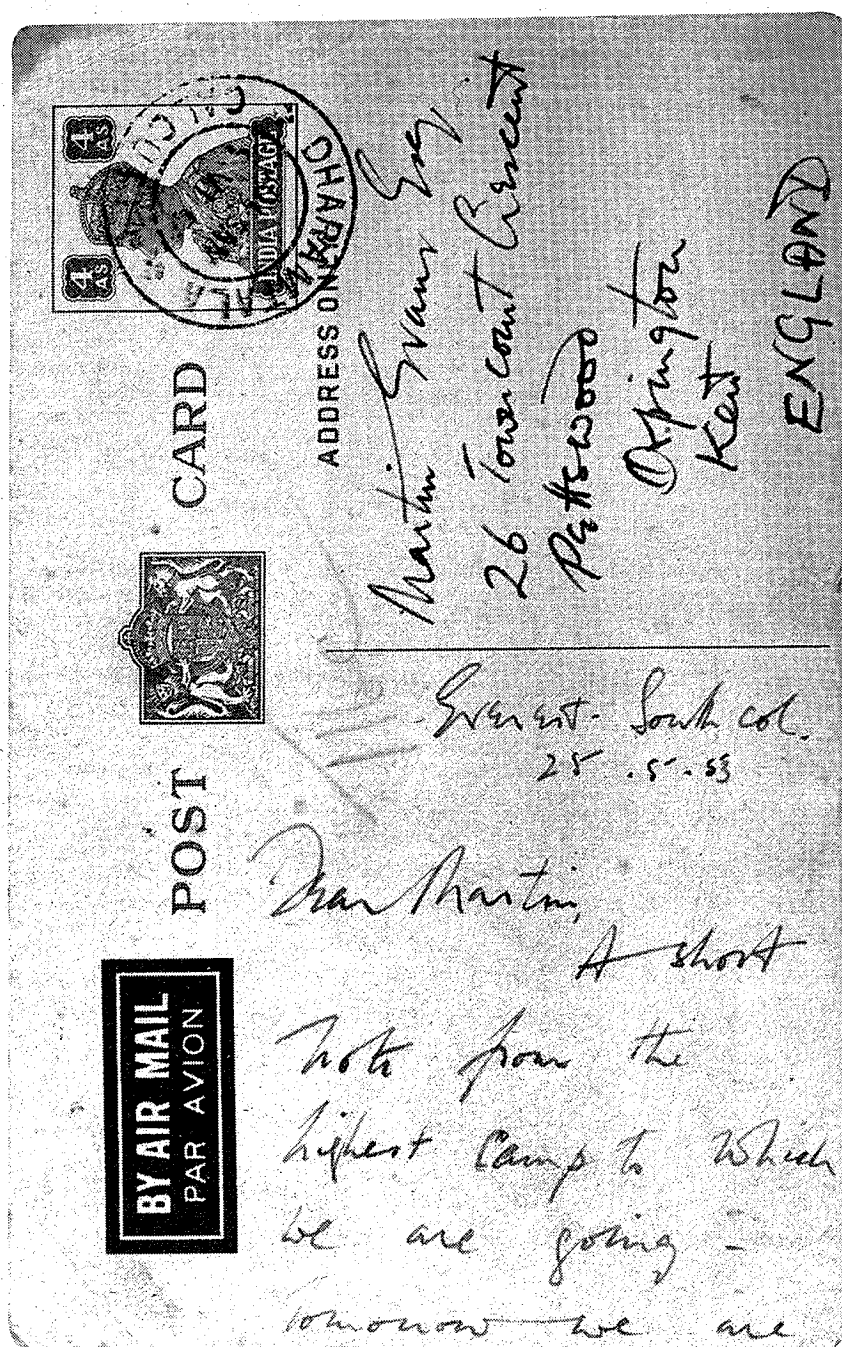 BY AIR MAIL
PAR AVION
POST CARD
4 AS
4 AS
INDIA POSTAGE
ADDRESS ONLY
Martin Evans Esq
26 Towercourt Crescent
Pettswood
Orpington
Kent
ENGLAND
Everest - South Col.
25.5.53
Dear Martin,
A short
note from the
highest camp to which
we are going -
tomorrow we are